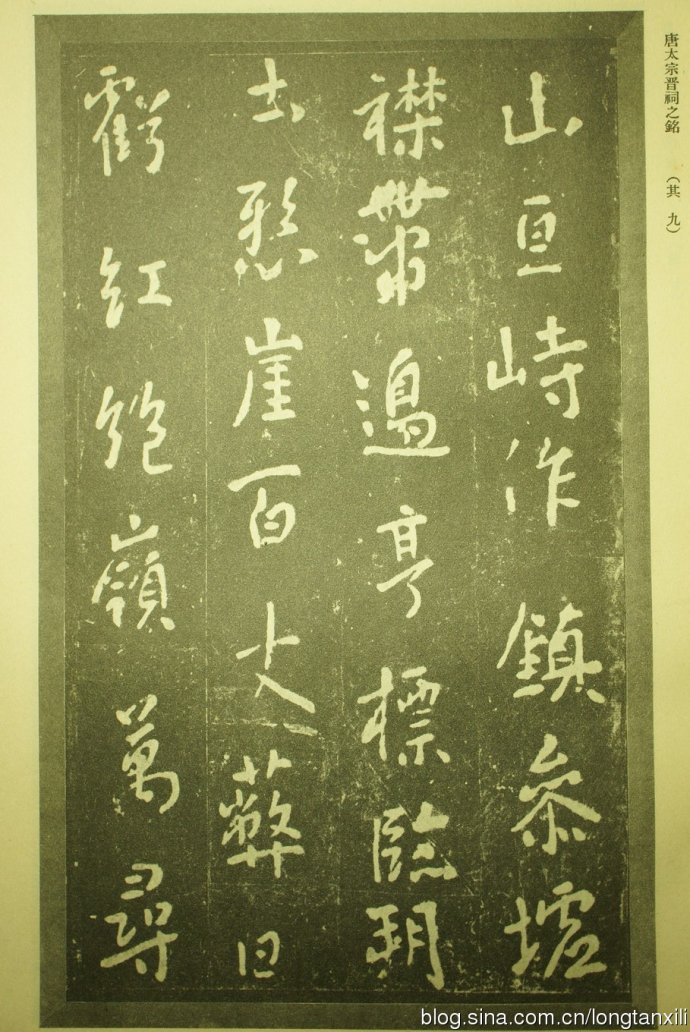 唐太宗晋祠之銘 （其九）
山亘峙作鎮參墟
襟帶邊亭標臨朔
土懸崖百丈蔽日
虧紅絕嶺萬尋
blog.sina.com.cn/longtanxili